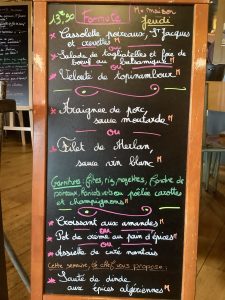 13€90 Formule M = maison
Jeudi
* Cassolette poireaux, St Jacques
et crevettes M
ou
* Salade de tagliatelles et foie de
boeuf au balsamique M
ou
* Velouté de topinambours M
* Araignée de porc,
sauce moutarde M
ou
* Filet de Merlan,
sauce vin blanc M
Garnitures: frites, riz, mogettes, fondue de
poireaux, haricots verts ou poêlée carottes
et champignons M
* Croissant aux amandes M
ou
* Pot de crème au pain d'épices M
ou
* Assiette de curé nantais
Cette semaine, le chef vous propose:
* Sauté de dinde
aux épices algériennes M